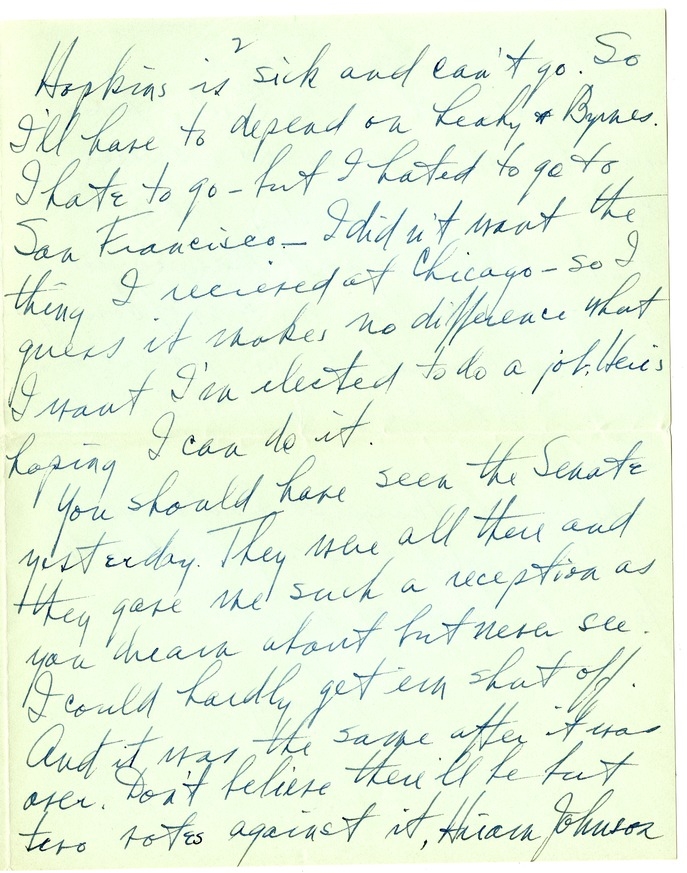 2
Hopkins is sick and can't go. So
I'll have to depend on Leahy & Byrnes.
I hate to go – but I hated to go to
San Francisco – I didn't want the
thing I recieved at Chicago – so I
guess it makes no difference what
I want I'm elected to do a job. Here's
hoping I can do it.
You should have seen the Senate
yesterday. They were all there and
they gave me such a reception as
you dream about but never see.
I could hardly get em shut off.
And it was the same after it was
over. Don't believe there'll be but
two votes against it, Hiram Johnson